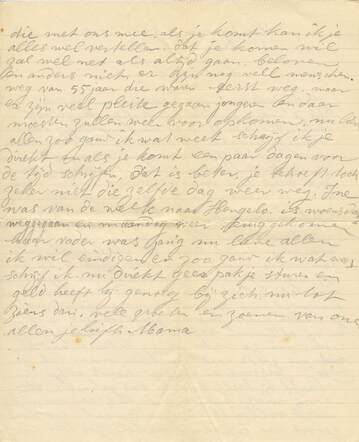 die met ons mee, als je komt kan ik je
alles wel vertellen. dat je komen wil
zal wel net als altijd gaan. beloven
en anders niet er zijn nog vell menschen
weg van 55 jaar die waren eerst weg. maar
er zijn veel gegaan jongeren en daar
moesten zullen weer voor opkomen, nu
allen zoo gauw ik wat weet schrijf ik je
direkt en als je komt een paar dagen voor
de tijd schrijfen, dat is beter, je hoeft toch
zeker niet die zelfde dag weer weg. Ine
was van de week naar Hengelo. is woensdag
weggegaan en weer
haar vader was jarig nu lieve allen
ik wil eindigen en zoo gauw ik wat weet
schrijf ik nu direkt geen pakje sturen en
geld heeft hij genoeg bij zich nu tot
ziens dan, vele groeten en zoenen van ons
allen je liefh Mama